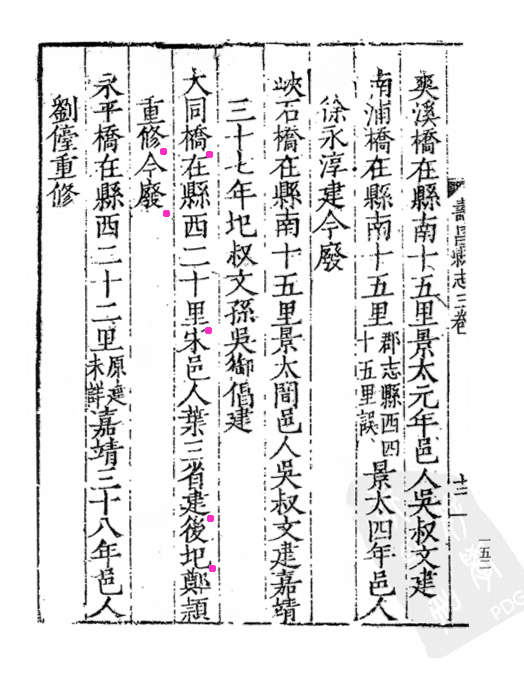 壽昌縣志三卷
十二
一五二
奭溪橋在縣南十五里景太元年邑人吳叔文建
南浦橋在縣南十五里郡志縣西四十五里誤景太四年邑人
徐永淳建今廢
峽石橋在縣南十五里景太間邑人吳叔文建嘉靖
三十七年圯叔文孫吳御倡建
大同橋在縣西二十里宋邑人葉三省建後圯鄭頴
重修今廢
永平橋在縣西二十二里原建未詳嘉靖三十八年邑人
劉儓重修
PDG